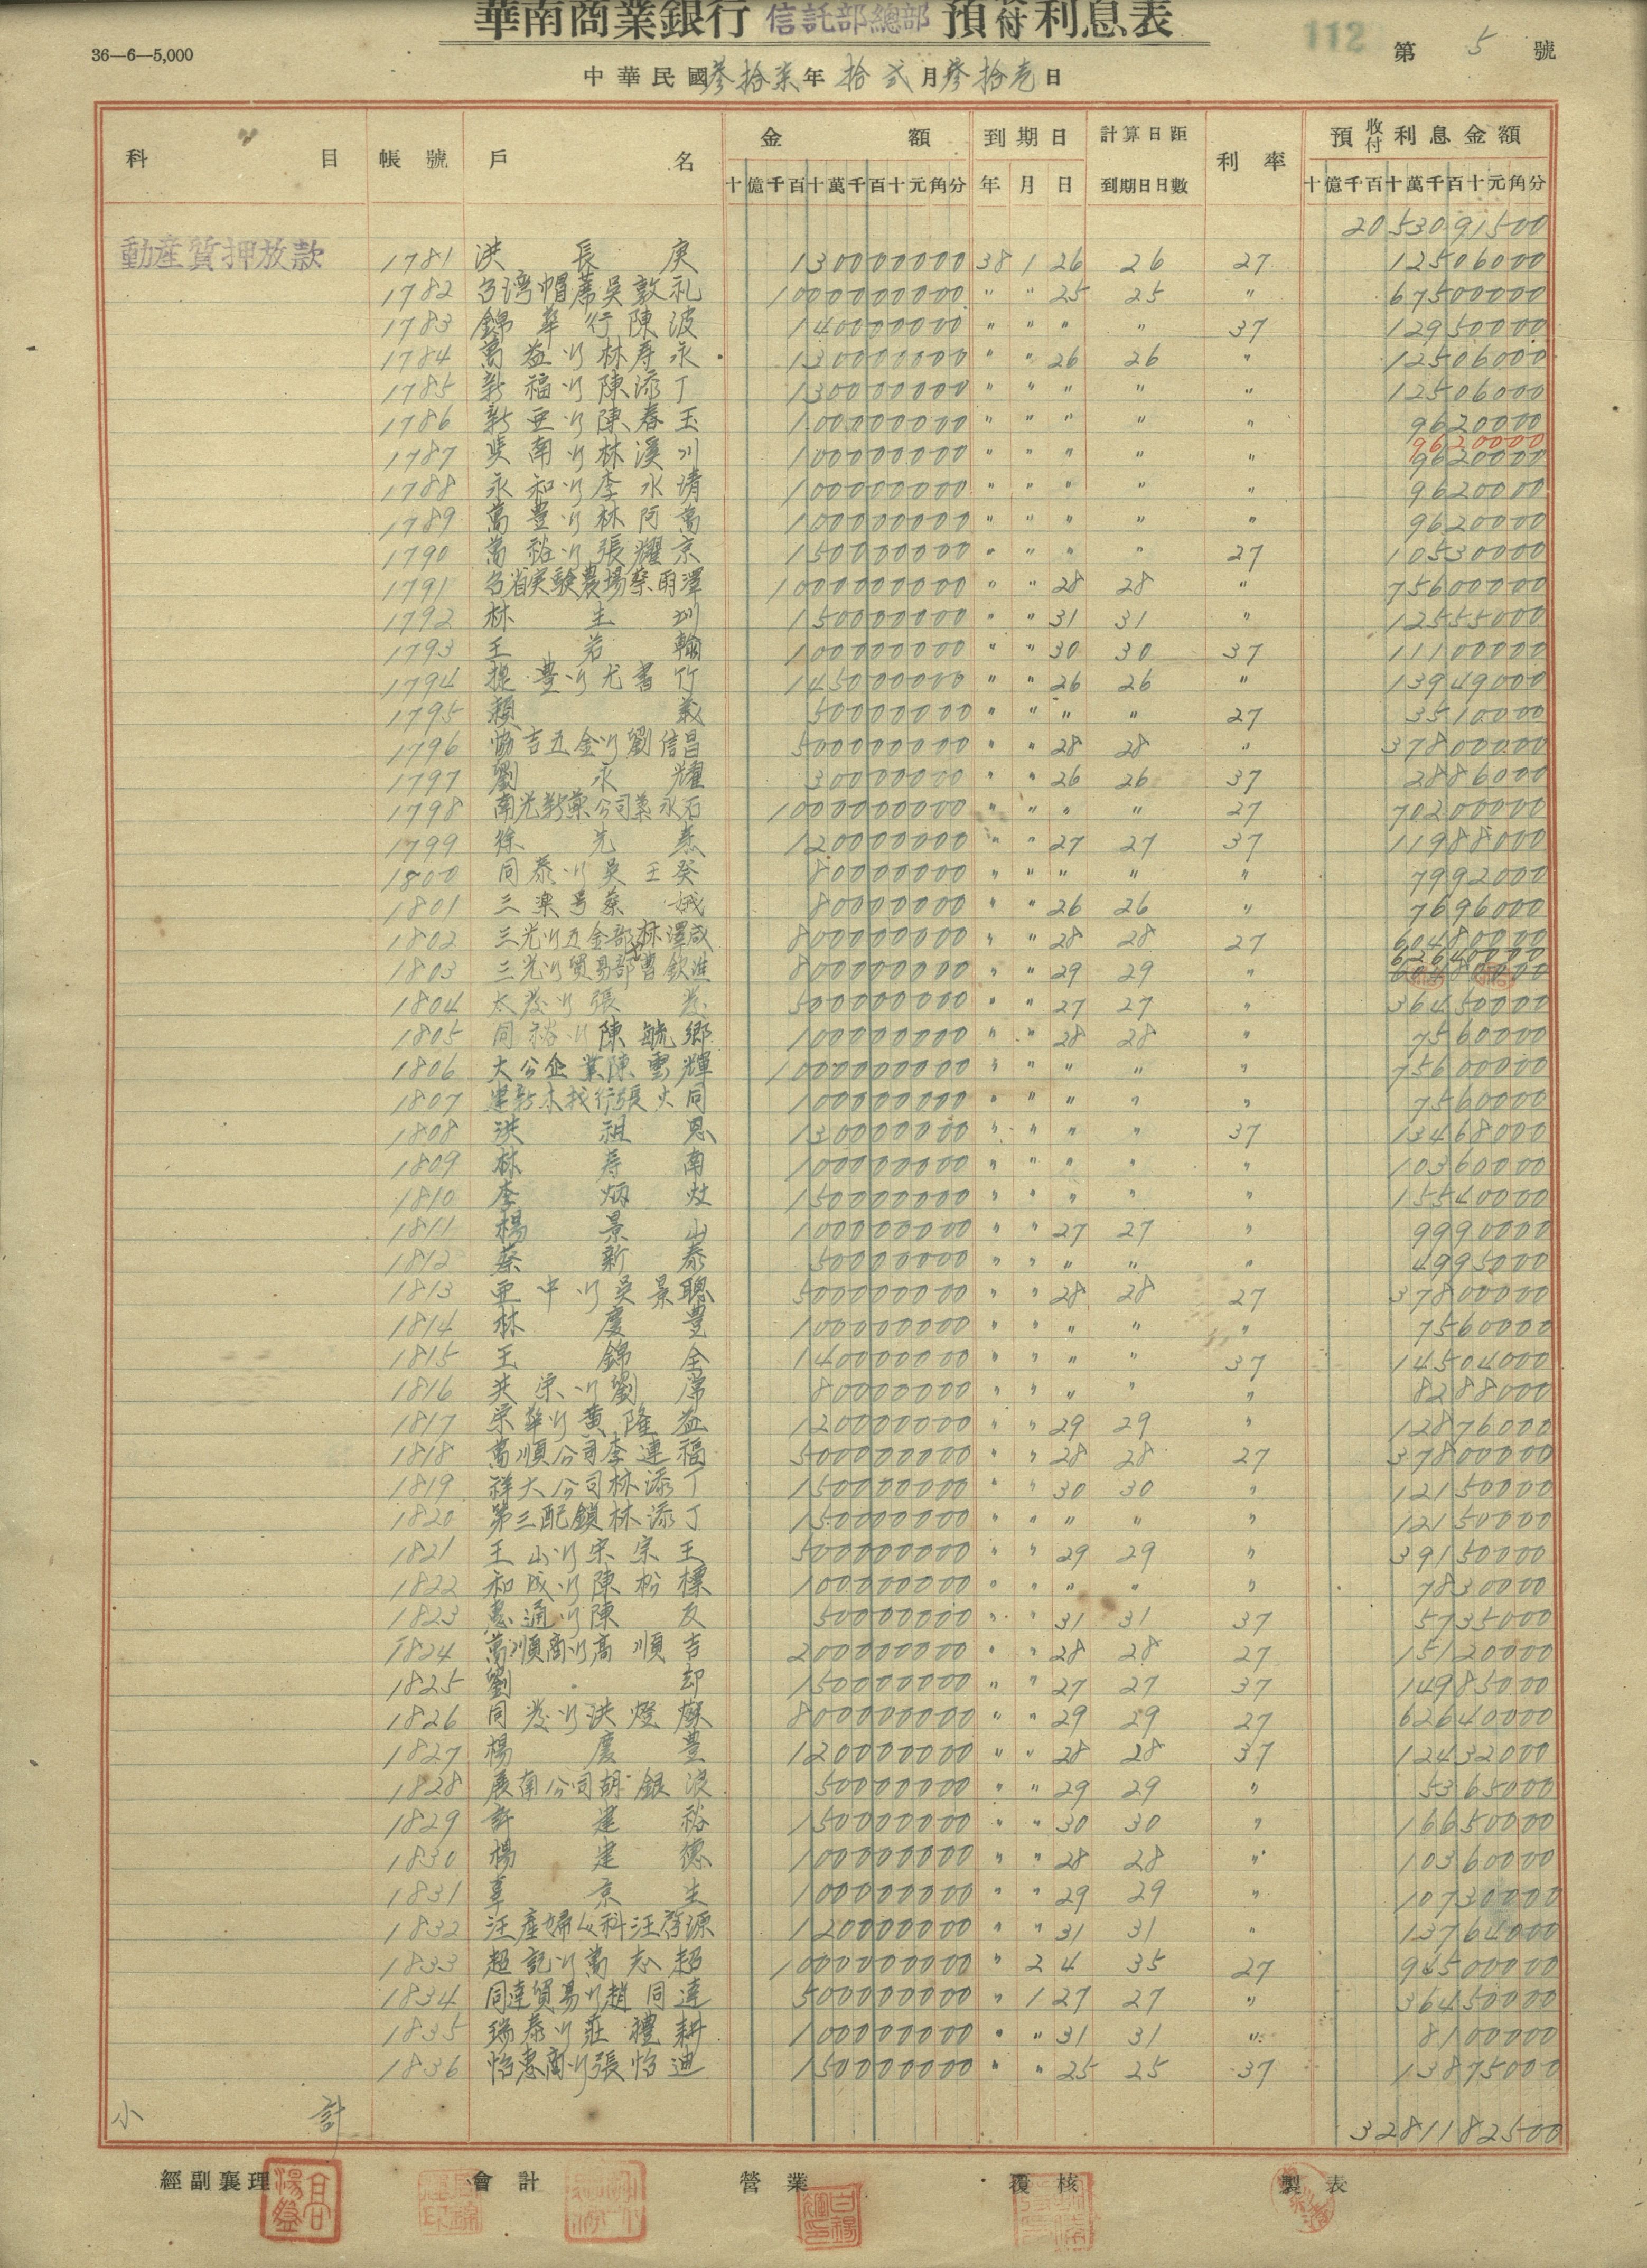 華南商業銀行 信託部總部 預收付利息表
36—6—5,000
112
第 5 號
中華民國叁拾柒年拾弍月叁拾壱日
科目 帳號 戶名 金額 到期日 計算日距到期日日數 利率 預收付利息金額
十億千百十萬千百十元角分 年 月 日 十億千百十萬千百十元角分
2053091500
動產質押放款 1781 洪長庚 1300000000 38 1 26 26 27 12506000
1782 台湾帽蓆吳敦礼 10000000000 〃 〃 25 25 〃 67500000
1783 錦華行陳波 1400000000 〃 〃 〃 〃 37 12950000
1784 萬益行林寿永 1300000000 〃 〃 26 26 〃 12506000
1785 新福行陳添丁 1300000000 〃 〃 〃 〃 〃 12506000
1786 新亜行陳春玉 1000000000 〃 〃 〃 〃 〃 9620000
9620000
1787 吳南行林溪川 1000000000 〃 〃 〃 〃 〃 9620000
1788 永和行李水清 1000000000 〃 〃 〃 〃 〃 9620000
1789 萬豊行林阿萬 1000000000 〃 〃 〃 〃 〃 9620000
1790 萬裕行張耀京 1500000000 〃 〃 〃 〃 27 10530000
1791 台省実驗農場蔡雨澤 10000000000 〃 〃 28 28 〃 75600000
1792 林生圳 1500000000 〃 〃 31 31 〃 12555000
1793 王若翰 1000000000 〃 〃 30 30 37 11100000
1794 提豊行尤書竹 1450000000 〃 〃 26 26 〃 13949000
1795 賴義 500000000 〃 〃 〃 〃 27 3510000
1796 協吉五金行劉信昌 5000000000 〃 〃 28 28 〃 37800000
1797 劉永耀 300000000 〃 〃 26 26 37 2886000
1798 南光新藥公司葉永石 10000000000 〃 〃 〃 〃 27 70200000
1799 徐光泰 1200000000 〃 〃 27 27 37 11988000
1800 同泰行吳王癸 800000000 〃 〃 〃 〃 〃 7992000
1801 三楽号蔡娥 800000000 〃 〃 26 26 〃 7696000
1802 三光行五金部林澤成 8000000000 〃 〃 28 28 27 60480000
62640000
1803 三光行貿易部曹欽進 8000000000 〃 〃 29 29 〃 60480000
1804 太发行張发 5000000000 〃 〃 27 27 〃 36450000
1805 同裕行陳毓鄉 1000000000 〃 〃 28 28 〃 7560000
1806 大公企業陳雲輝 10000000000 〃 〃 〃 〃 〃 75600000
1807 建新木材行張火同 1000000000 〃 〃 〃 〃 〃 7560000
1808 洪祖恩 1300000000 〃 〃 〃 〃 37 13468000
1809 林寿南 1000000000 〃 〃 〃 〃 〃 10360000
1810 李炳炆 1500000000 〃 〃 〃 〃 〃 15540000
1811 楊景山 1000000000 〃 〃 27 27 〃 9990000
1812 蔡新泰 500000000 〃 〃 〃 〃 〃 4995000
1813 亜中行吳景聰 5000000000 〃 〃 28 28 27 37800000
1814 林慶豊 1000000000 〃 〃 〃 〃 〃 7560000
1815 王錦全 1400000000 〃 〃 〃 〃 37 14504000
1816 洪栄行劉席 800000000 〃 〃 〃 〃 〃 8288000
1817 栄華行黄隆益 1200000000 〃 〃 29 29 〃 12876000
1818 萬順公司李連福 5000000000 〃 〃 28 28 27 37800000
1819 祥大公司林添丁 1500000000 〃 〃 30 30 〃 12150000
1820 第三配鎖林添丁 1500000000 〃 〃 〃 〃 〃 12150000
1821 王山行宋宗王 5000000000 〃 〃 29 29 〃 39150000
1822 和成行陳松標 1000000000 〃 〃 〃 〃 〃 7830000
1823 惠通行陳友 500000000 〃 〃 31 31 37 5735000
1824 萬順商行高順吉 2000000000 〃 〃 28 28 27 15120000
1825 劉却 1500000000 〃 〃 27 27 37 14985000
1826 同发行洪燈爍 8000000000 〃 〃 29 29 27 62640000
1827 楊慶豊 1200000000 〃 〃 28 28 37 12432000
1828 展南公司胡銀浪 500000000 〃 〃 29 29 〃 5365000
1829 許建裕 1500000000 〃 〃 30 30 〃 16650000
1830 楊建德 1000000000 〃 〃 28 28 〃 10360000
1831 辜京生 1000000000 〃 〃 29 29 〃 10730000
1832 汪產婦女科汪啓源 1200000000 〃 〃 31 31 〃 13764000
1833 超記行萬志超 10000000000 〃 2 4 35 27 94500000
1834 同達貿易行趙同達 5000000000 〃 1 27 27 〃 36450000
1835 瑞泰行莊禮耕 1000000000 〃 〃 31 31 〃 8100000
1836 怡惠商行張怡迪 1500000000 〃 〃 25 25 37 13875000
小計 3281182500
經副襄理 會計 營業 覆核 製表